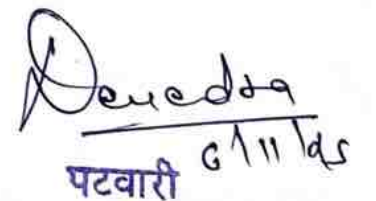 Devedra
6/11/25
पटवारी